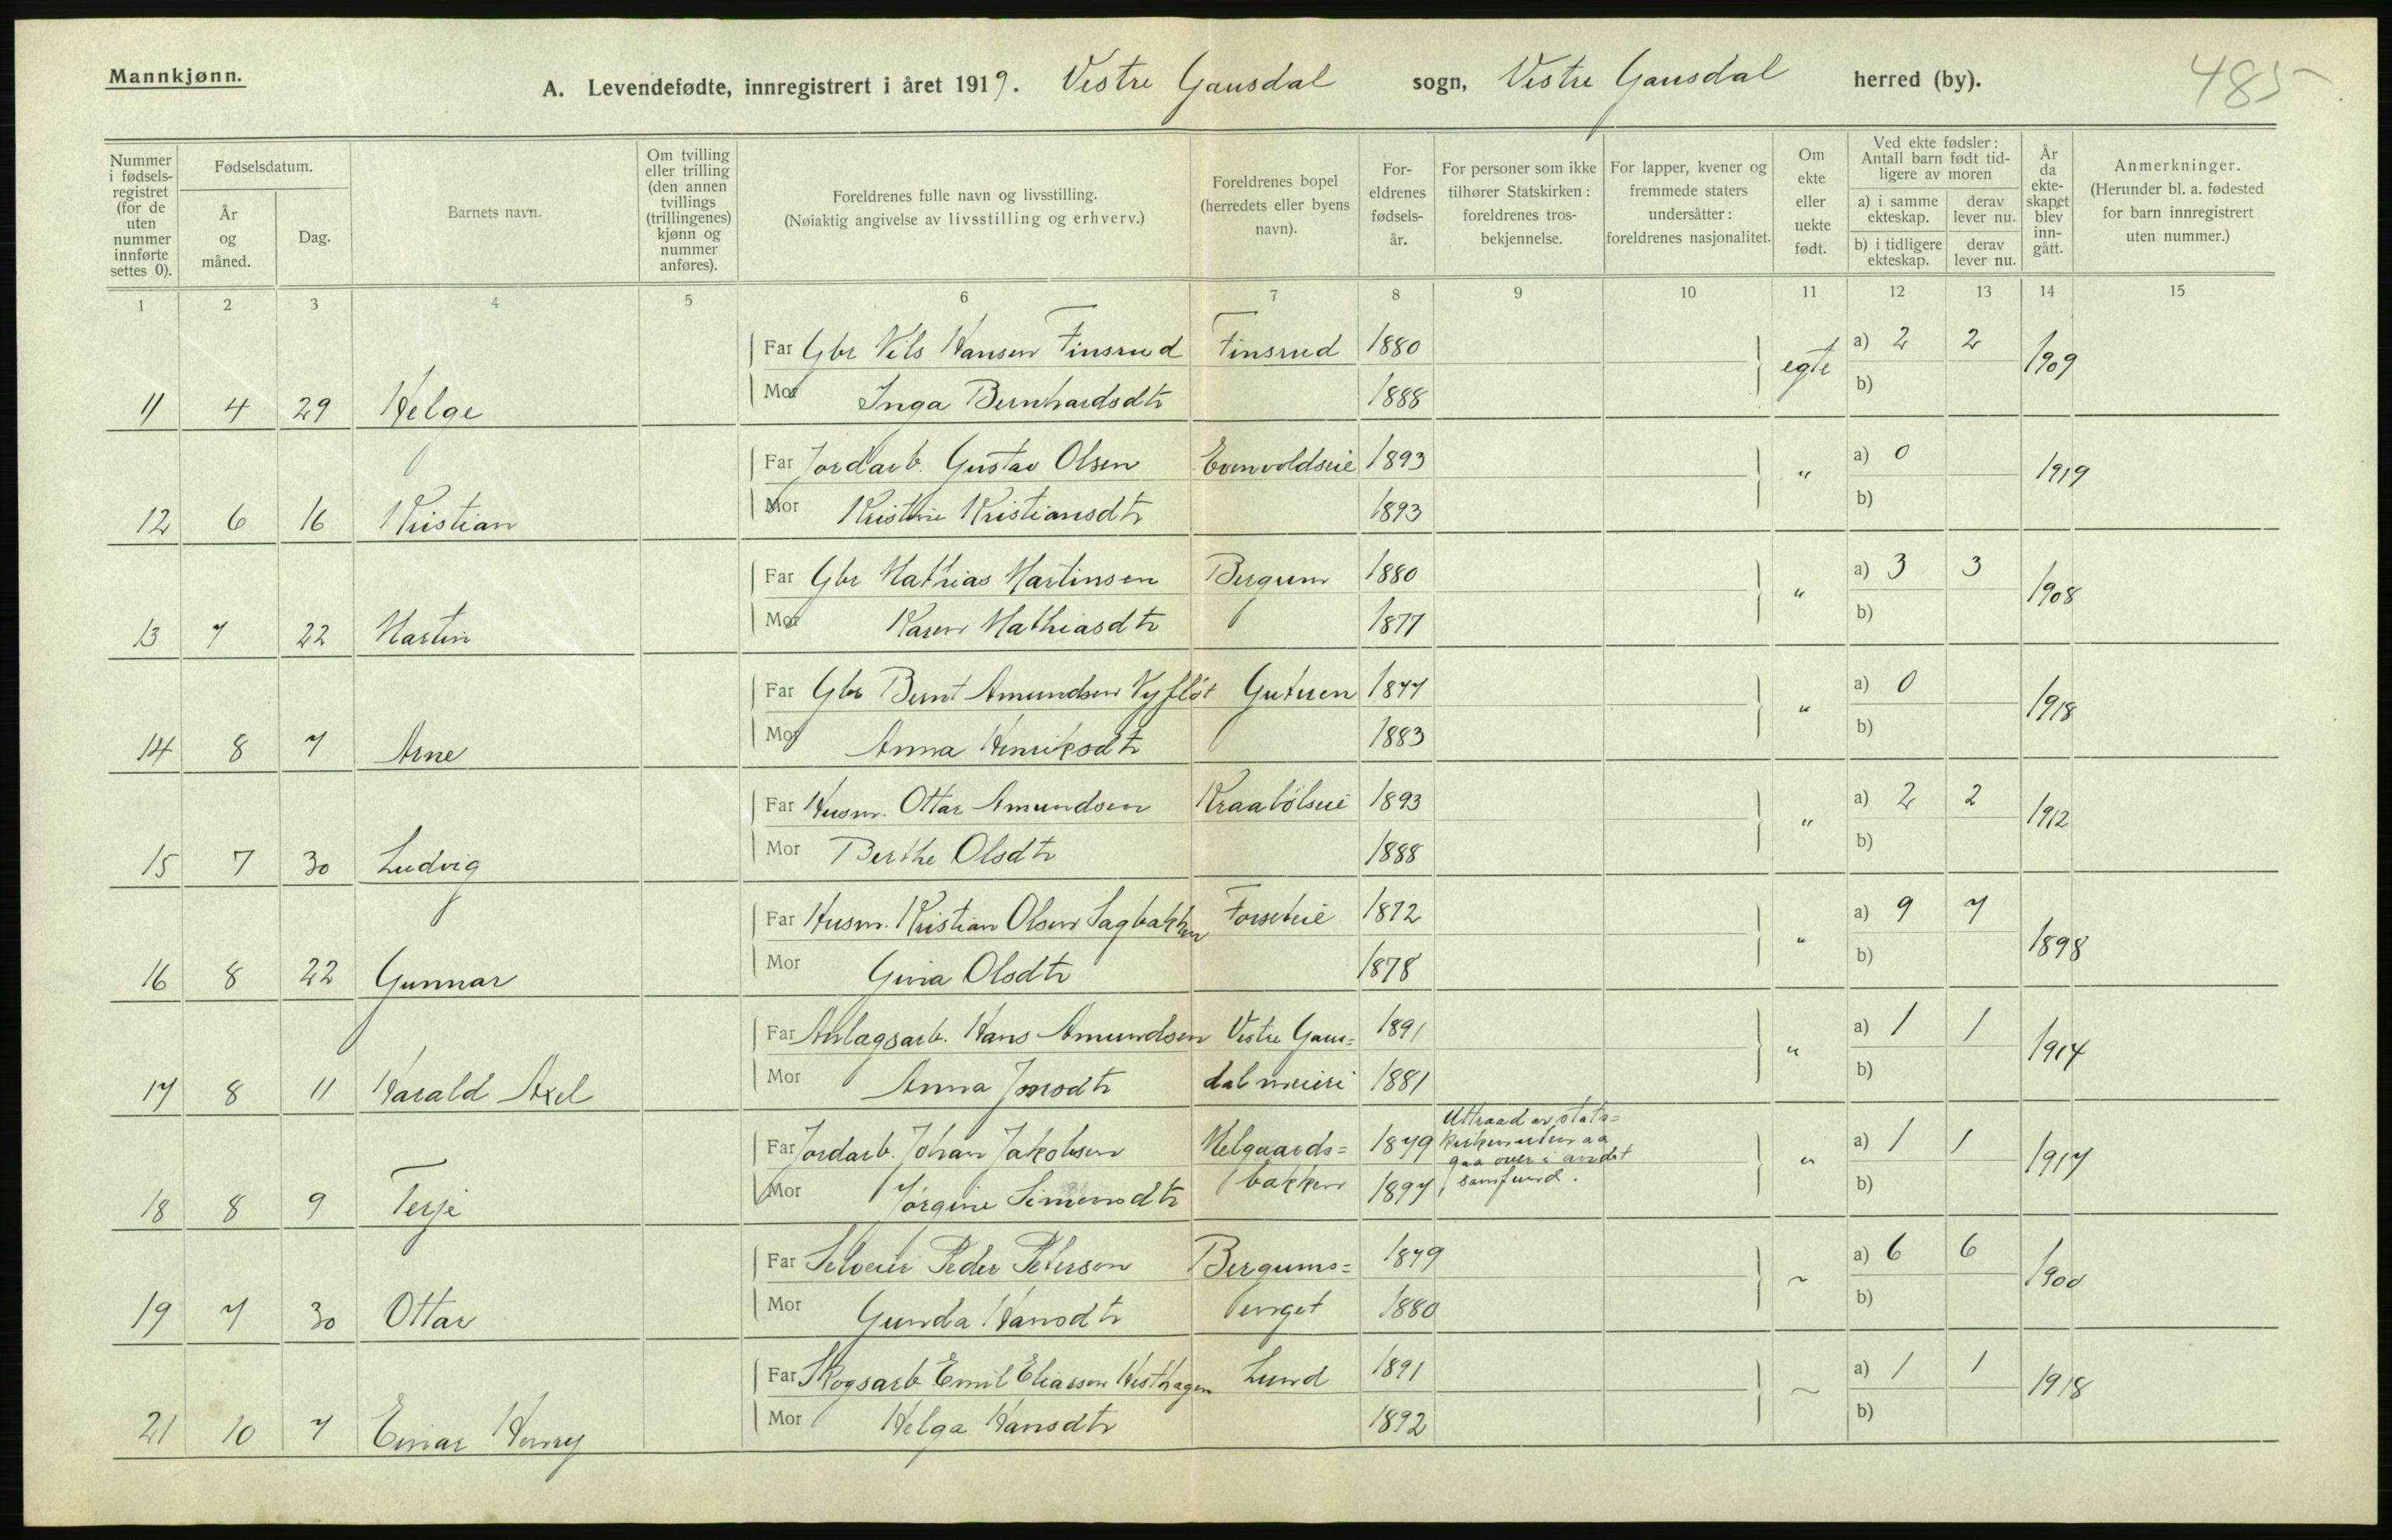 Mannkjønn.
A. Levendefødte, innregistrert i året 1919. Vestre Gausdal sogn, Vestre Gausdal herred (by).
485
Nummer i fødsels-registret (for de uten nummer innførte settes 0).
Fødselsdatum.
År og måned.
Dag.
Barnets navn.
Om tvilling eller trilling (den annen tvillings (trillingenes) kjønn og nummer anføres).
Foreldrenes fulle navn og livsstilling.
(Nøiaktig angivelse av livsstilling og erhverv.)
Foreldrenes bopel (herredets eller byens navn).
For-eldrenes fødsels-år.
For personer som ikke tilhører Statskirken: foreldrenes tros-bekjennelse.
For lapper, kvener og fremmede staters undersåtter: foreldrenes nasjonalitet.
Om ekte eller uekte født.
Ved ekte fødsler: Antall barn født tid-ligere av moren
a) i samme ekteskap.
derav lever nu.
b) i tidligere ekteskap.
derav lever nu.
År da ekte-skapet blev inn-gått.
Anmerkninger.
(Herunder bl. a. fødested for barn innregistrert uten nummer.)
1 2 3 4 5 6 7 8 9 10 11 12 13 14 15
Far Gbr Nils Hansen Finsrud Finsrud 1880 egte a) 2 2 1909
11 4 29 Helge Mor Inga Bernhardsdtr 1888 b)
Far Jordarb. Gustav Olsen Evenvoldseie 1893 " a) 0 1919
12 6 16 Kristian Mor Kristine Kristiansdtr 1893 b)
Far Gbr Mathias Martinsen Bergum 1880 " a) 3 3 1908
13 7 22 Martin Mor Karen Mathiasdtr 1877 b)
Far Gbr Bernt Amundsen Nyfløt Guturen 1877 " a) 0 1918
14 8 7 Arne Mor Anna Henriksdtr 1883 b)
Far Husm. Ottar Amundsen Kraabølseie 1893 " a) 2 2 1912
15 7 30 Ludvig Mor Berthe Olsdtr 1888 b)
Far Husm. Kristian Olsen Sagbakken Forseteie 1872 " a) 9 7 1898
16 8 22 Gunnar Mor Gina Olsdtr 1878 b)
Far Anlægsarb. Hans Amundsen Vestre Gaus= 1891 " a) 1 1 1914
17 8 11 Harald Axel Mor Anna Jonsdtr dal meieri 1881 b)
Far Jordarb. Johan Jakobsen Helgaards= 1879 Uttraad av stats= " a) 1 1 1917
kirken uten aa
gaa over i andet
18 8 9 Terje Mor Jørgine Simensdtr bakken 1897 samfund. b)
Far Selveier Peder Petersen Bergums= 1879 ~ a) 6 6 1900
19 7 30 Ottar Mor Gunda Hansdtr enget 1880 b)
Far Skogsarb Emil Eliassen Hesthagen Lund 1891 ~ a) 1 1 1918
21 10 7 Einar Henry Mor Helga Hansdtr 1892 b)